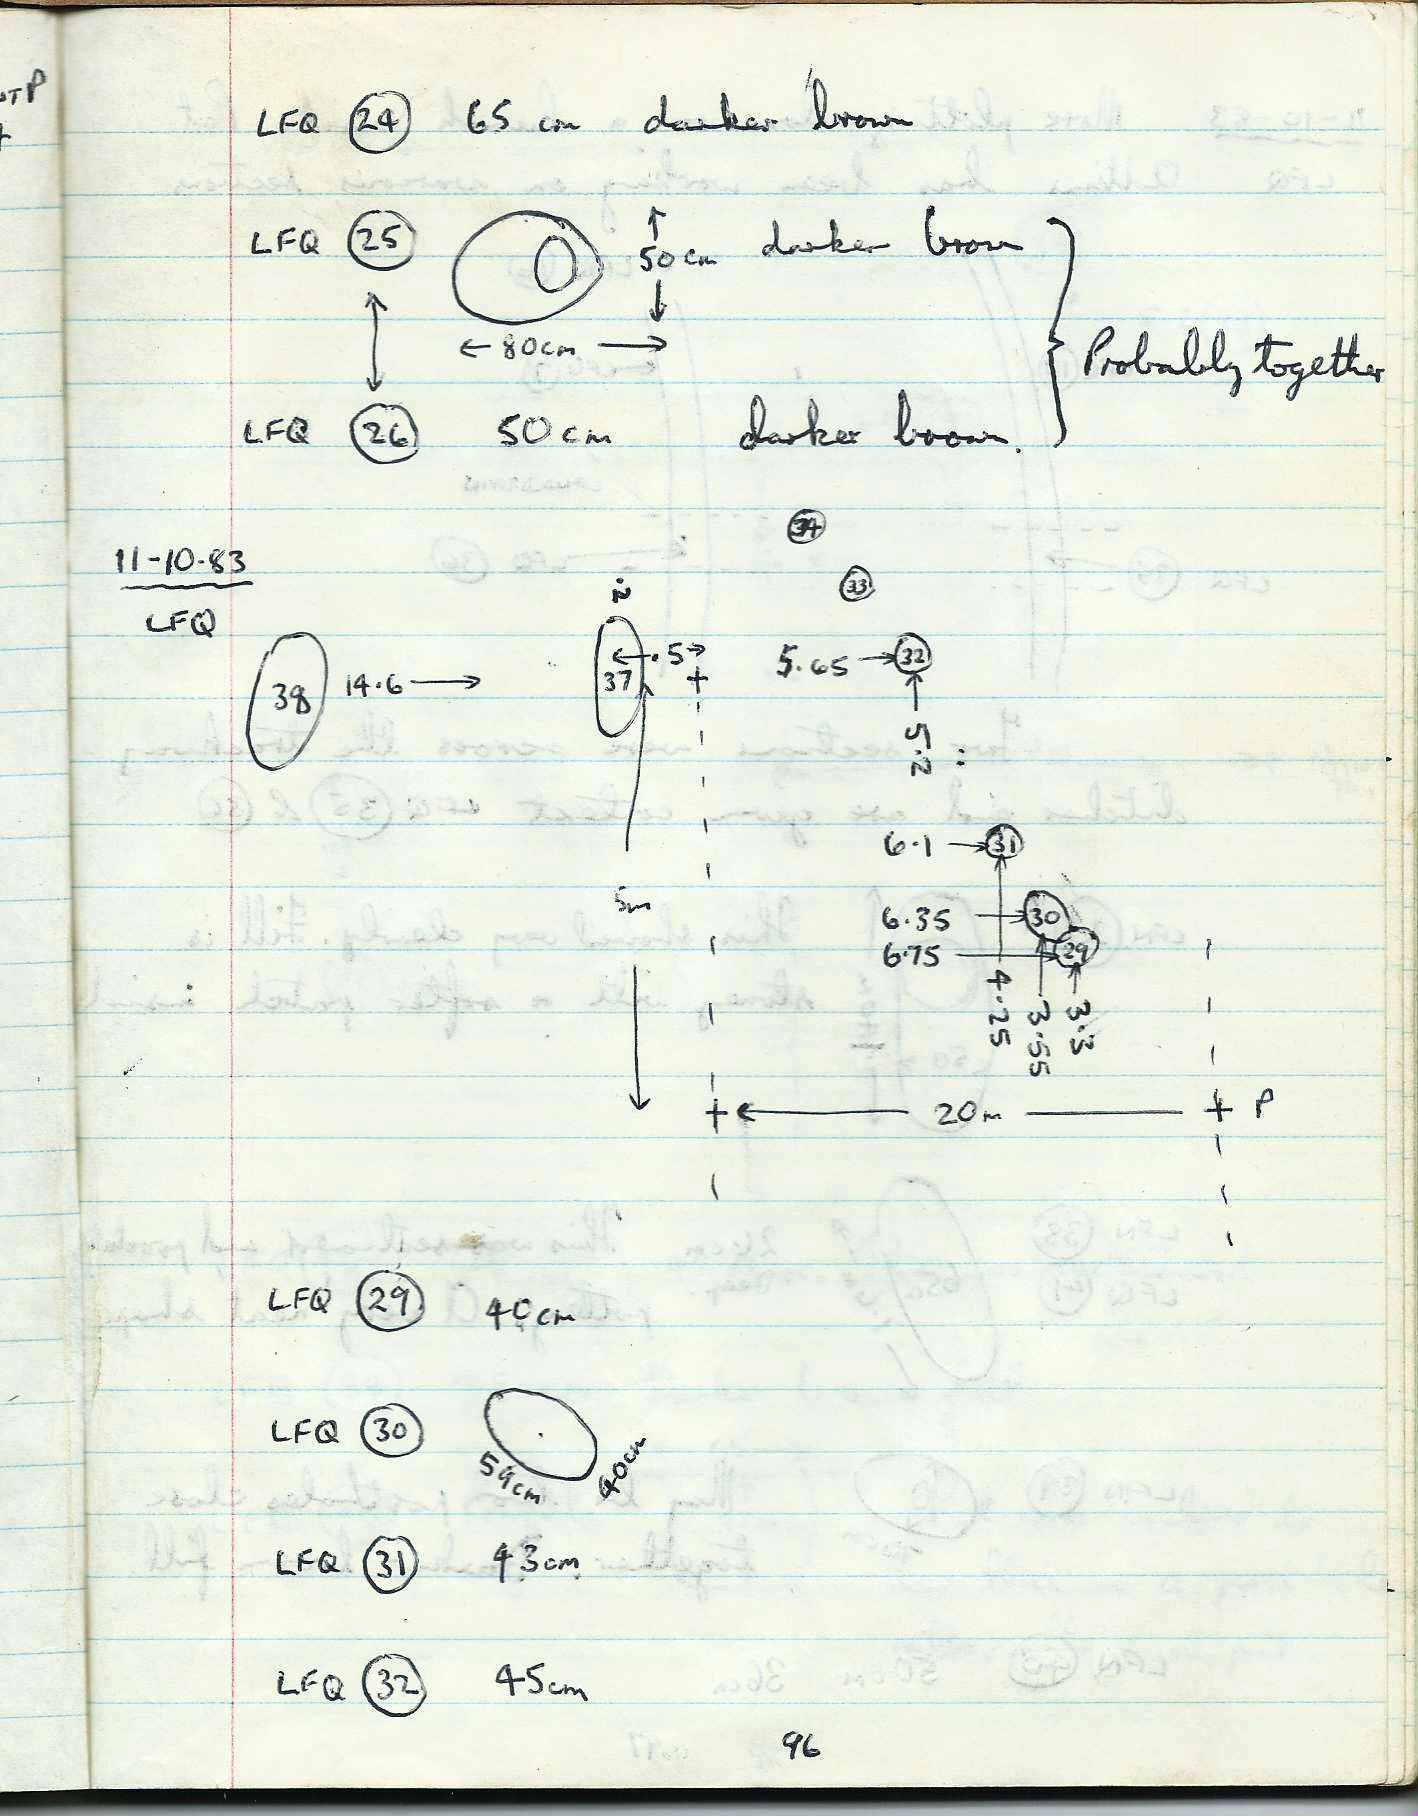 LFQ 24 65 cm darker brown
LFQ 25 50cm darker brown
80cm
Probably together
LFQ 26 50cm darker brown.
34
11-10-83
33
LFQ
38 14.6 37 .5 5.65 32
5.2
6.1 31
5m
6.35 30
6.75 29
4.25 3.55 3.3
20m P
LFQ 29 40cm
LFQ 30
59cm 40cm
LFQ 31 43cm
LFQ 32 45cm
96